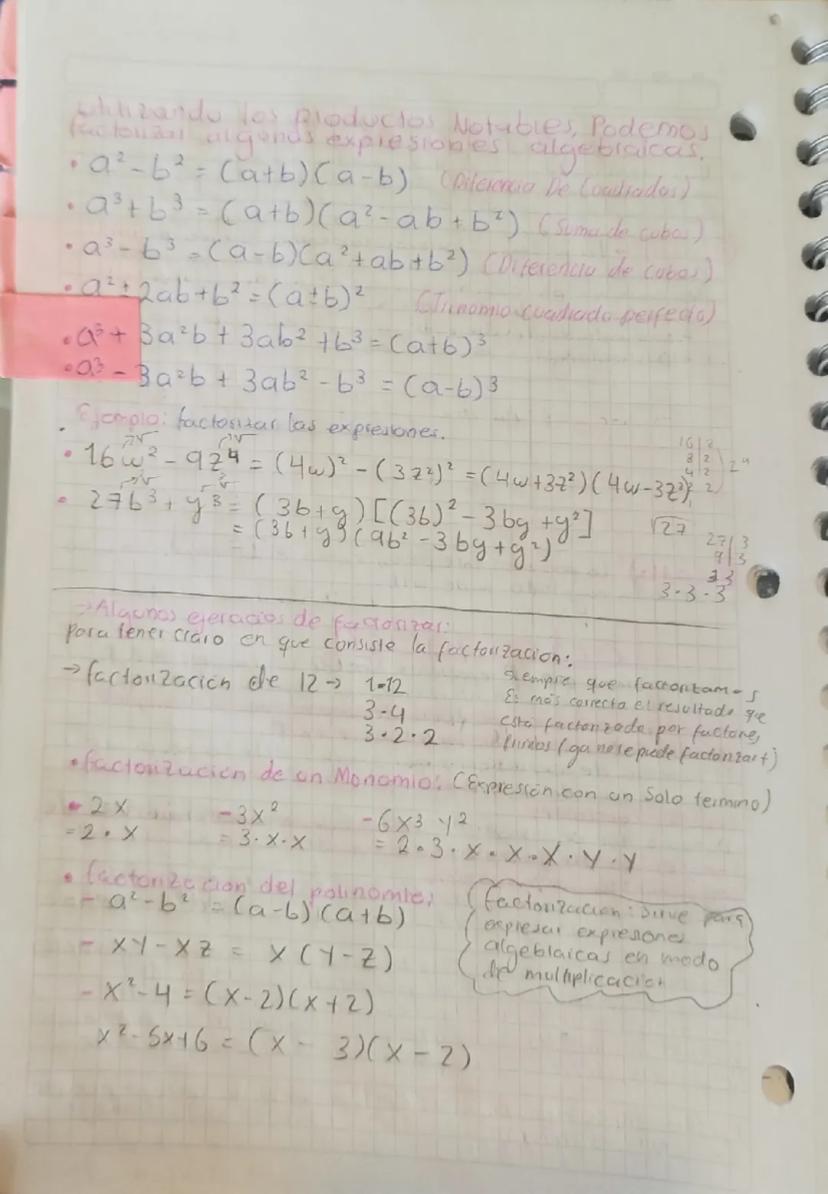 Utilizando los productos Notables, Podemos
factorizar algunas expresiones algebraicas.
• a² - b² = (a+b)(a-b) (Diferencia De Cuadrados)
• a³ + b³ = (a+b)(a² - ab + b²) (Suma de cubos)
• a³ - b³ = (a-b)(a² + ab + b²) (Diferencia de cubos)
• a² ± 2ab + b² = (a±b)² (Trinomio cuadrado perfecto)
• a³ + 3a²b + 3ab² + b³ = (a+b)³
• a³ - 3a²b + 3ab² - b³ = (a-b)³
Ejemplo: factorizar las expresiones.
• 16w² - 9z⁴ = (4w)² - (3z²)² = (4w+3z²)(4w-3z²)
16|2
8|2
4|2
2⁴
• 27b³ + y³ = (3b+y)[(3b)² - 3by + y²]
= (3b+y)(9b² - 3by + y²)
√27
27|3
9|3
3 3
3·3·3
→ Algunos ejercicios de factorizar:
para tener claro en que consiste la factorizacion:
→ factorizacion de 12 → 1·12
3·4
3·2·2
siempre que factorizamos
Es más correcta el resultado que
está factorizado por factores
primos (ya no se puede factorizar +)
• factorización de un Monomio: (Expresión con un solo termino)
- 2x - 3x² - 6x³y²
= 2·x = 3·x·x = 2·3·x·x·x·y·y
• factorización del polinomio:
- a² - b² = (a-b)(a+b)
- xy - xz = x(y-z)
- x² - 4 = (x-2)(x+2)
x² - 5x + 6 = (x - 3)(x - 2)
factorizacion: sirve para
expresar expresiones
algeblaicas en modo
de multiplicacion